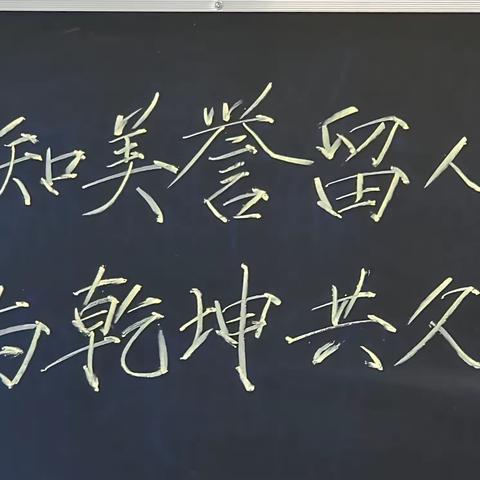 知美誉留人
与乾坤共久